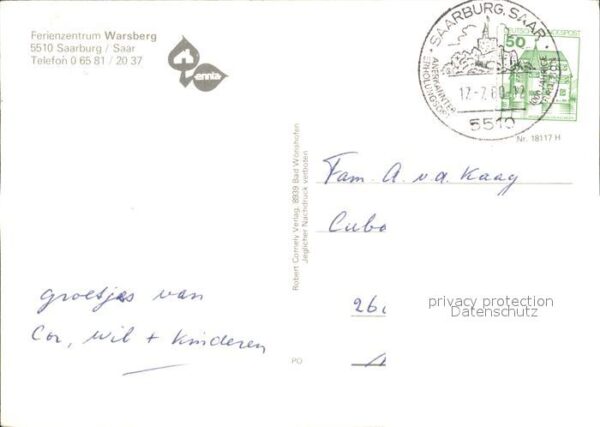 Ferienzentrum Warsberg
5510 Saarburg / Saar
Telefon 0 65 81 / 20 37
ennia
SAARBURG, SAAR
ANERKANNTER
ERHOLUNGSORT
5510
50
DEUTSCHE BUNDESPOST
Nr. 18117 H
Robert Cornely Verlag, 8939 Bad Wörishofen
Jeglicher Nachdruck verboten
Fam. A. v.d. Kaag
Cuba
26
privacy protection
Datenschutz
groetjes van
Cor, Wil + Kinderen
PO